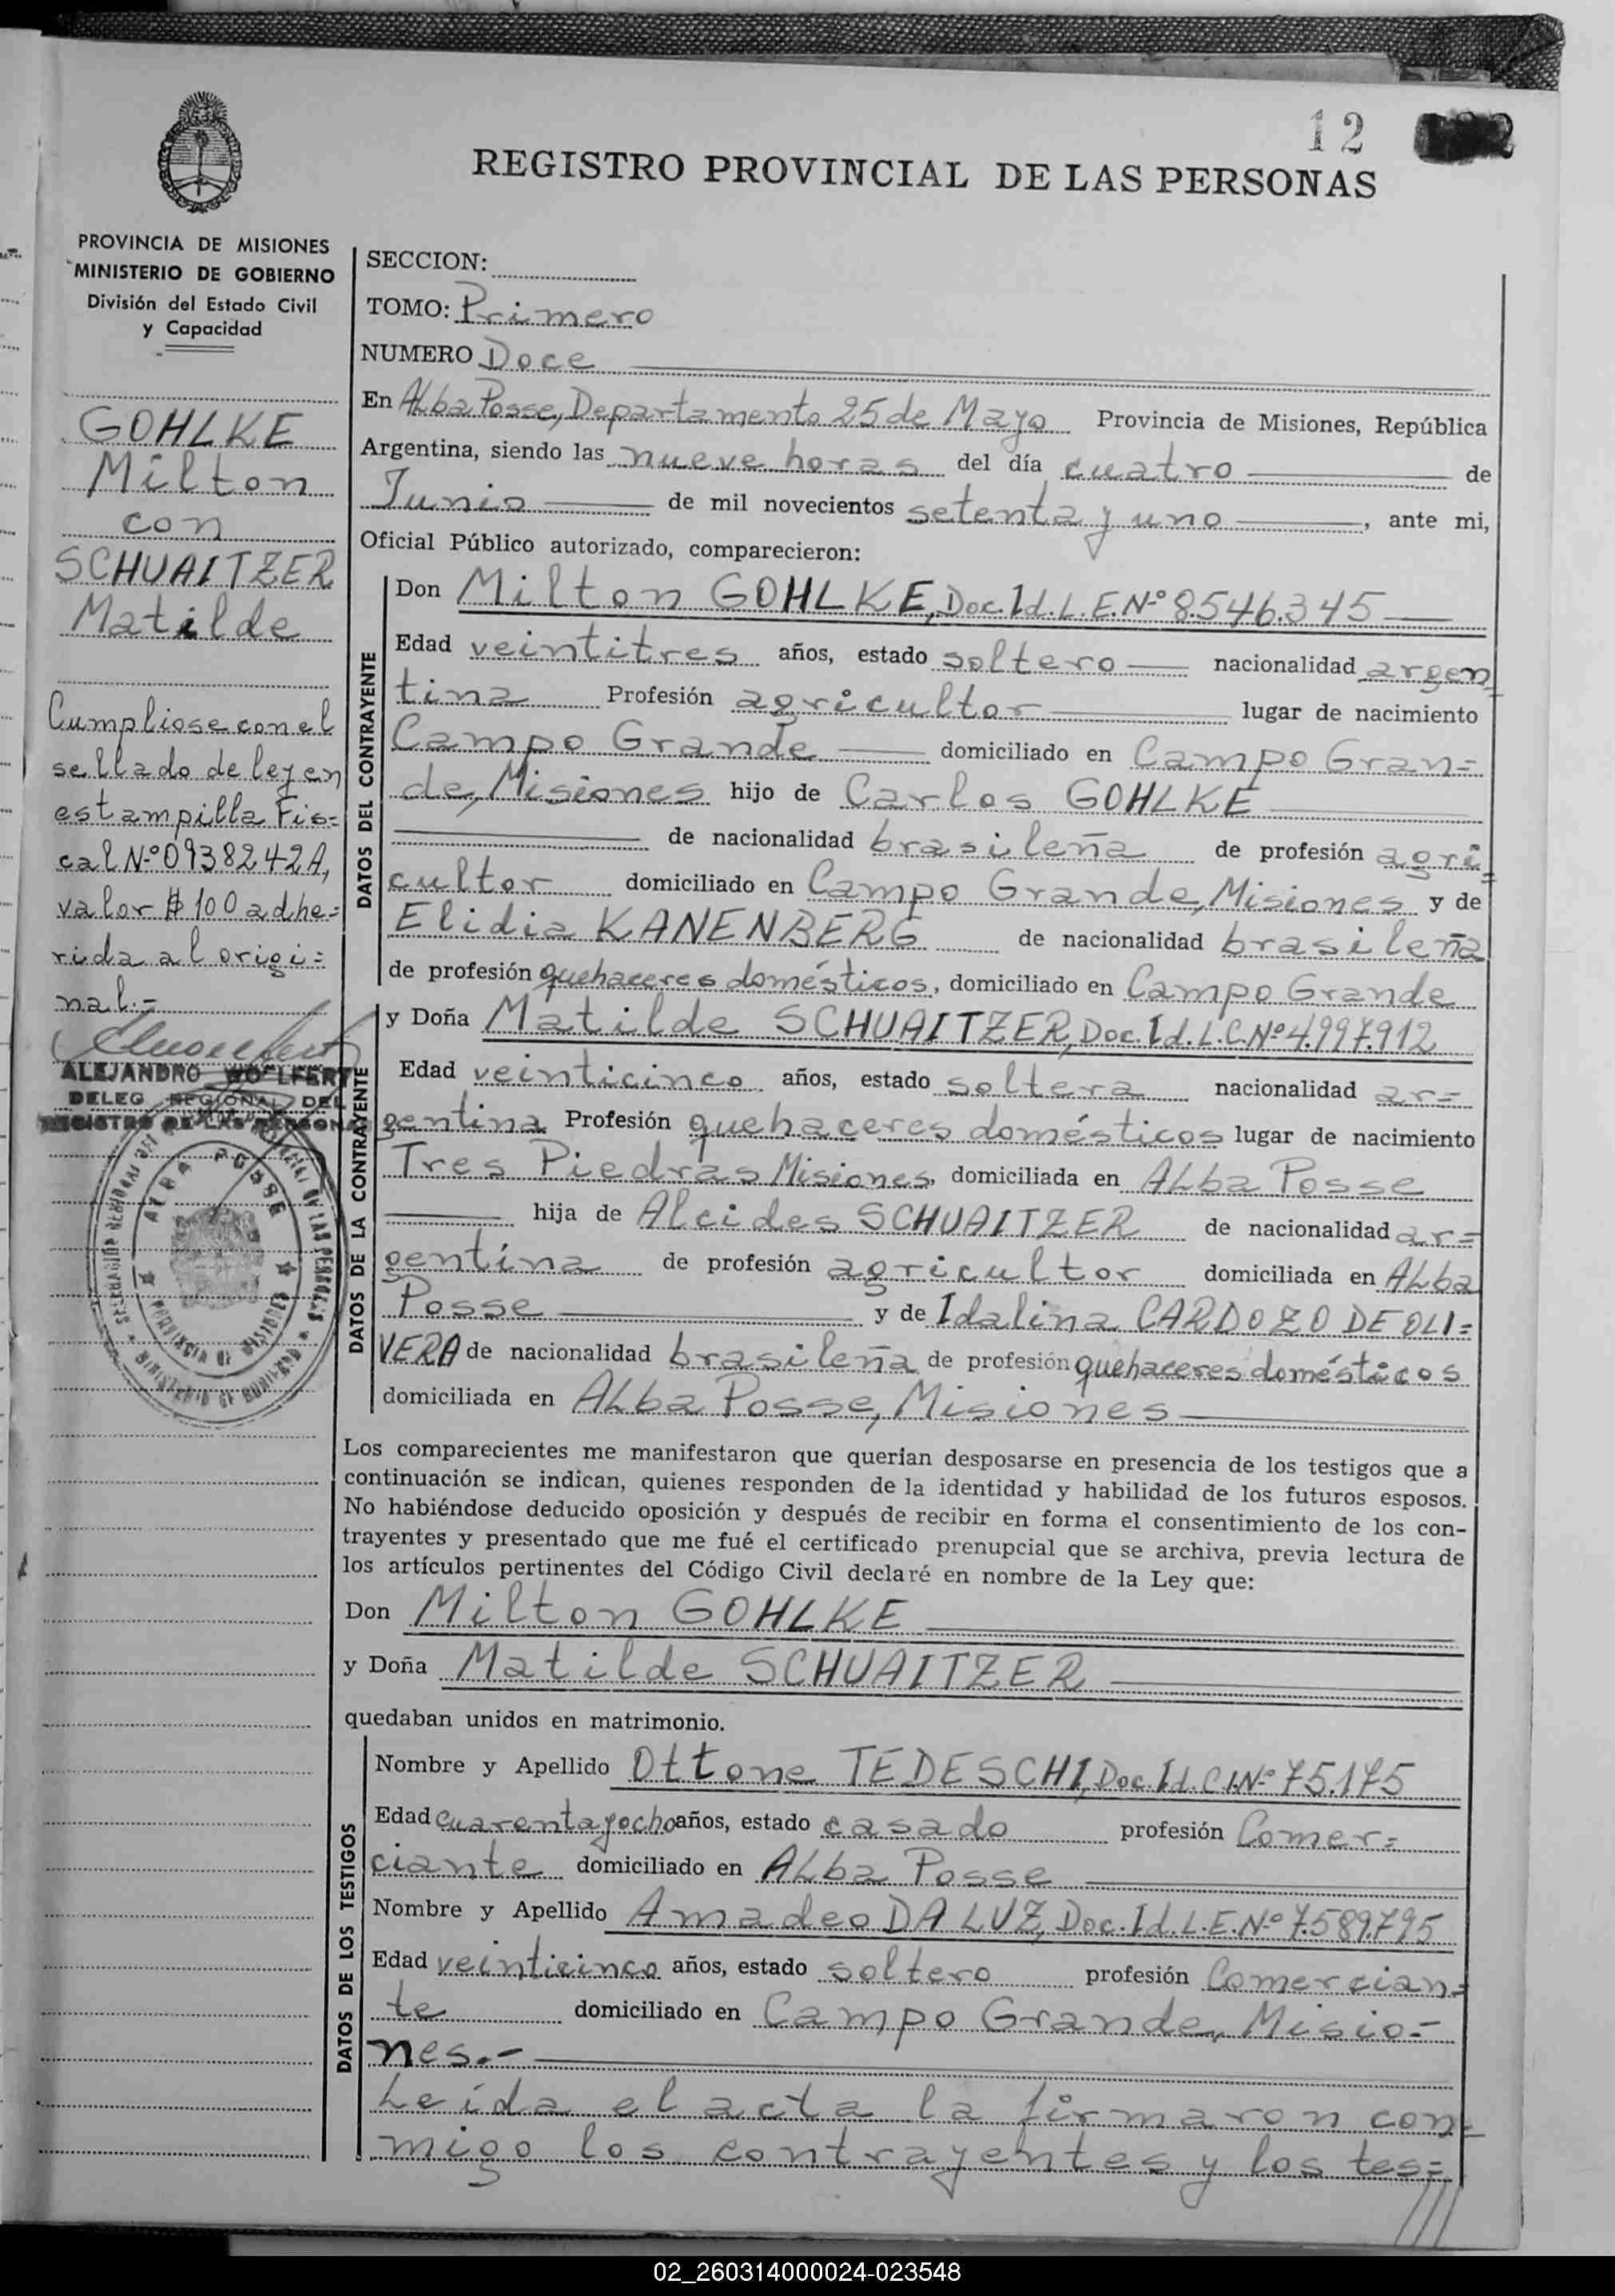 12
REGISTRO PROVINCIAL DE LAS PERSONAS
PROVINCIA DE MISIONES
MINISTERIO DE GOBIERNO
División del Estado Civil
y Capacidad
GOHLKE
Milton
con
SCHUAITZER
Matilde
Cumpliose con el
sellado de ley en
estampilla Fis=
cal Nº 0938242A,
valor $ 100 adhe=
rida al origi=
nal.-
ALEJANDRO WOLFERT
DELEG REGIONAL DEL
REGISTRO DE LAS PERSONAS
ALBA POSSE
PROVINCIA DE MISIONES
MINISTERIO DE GOBIERNO
SECCION:
TOMO: Primero
NUMERO Doce
En Alba Posse, Departamento 25 de Mayo Provincia de Misiones, República
Argentina, siendo las nueve horas del día cuatro de
Junio de mil novecientos setenta y uno, ante mi,
Oficial Público autorizado, comparecieron:
DATOS DEL CONTRAYENTE
Don Milton GOHLKE, Doc. Id. L.E. Nº 8.546.345
Edad veintitres años, estado soltero nacionalidad argen=
tina Profesión agricultor lugar de nacimiento
Campo Grande domiciliado en Campo Gran=
de, Misiones hijo de Carlos GOHLKE
de nacionalidad brasileña de profesión agri=
cultor domiciliado en Campo Grande, Misiones y de
Elidia KANENBERG de nacionalidad brasileña
de profesión quehaceres domésticos, domiciliado en Campo Grande
DATOS DE LA CONTRAYENTE
y Doña Matilde SCHUAITZER, Doc. Id. L.C. Nº 4.997.912
Edad veinticinco años, estado soltera nacionalidad ar=
gentina Profesión quehaceres domésticos lugar de nacimiento
Tres Piedras Misiones, domiciliada en Alba Posse
hija de Alcides SCHUAITZER de nacionalidad ar=
gentina de profesión agricultor domiciliada en Alba
Posse y de Idalina CARDOZO DE OLI=
VERA de nacionalidad brasileña de profesión quehaceres domésticos
domiciliada en Alba Posse, Misiones
Los comparecientes me manifestaron que querían desposarse en presencia de los testigos que a
continuación se indican, quienes responden de la identidad y habilidad de los futuros esposos.
No habiéndose deducido oposición y después de recibir en forma el consentimiento de los con-
trayentes y presentado que me fué el certificado prenupcial que se archiva, previa lectura de
los artículos pertinentes del Código Civil declaré en nombre de la Ley que:
Don Milton GOHLKE
y Doña Matilde SCHUAITZER
quedaban unidos en matrimonio.
DATOS DE LOS TESTIGOS
Nombre y Apellido Ottone TEDESCHI, Doc. Id. C.I. Nº 75.175
Edad cuarenta y ocho años, estado casado profesión Comer=
ciante domiciliado en Alba Posse
Nombre y Apellido Amadeo DA LUZ, Doc. Id. L.E. Nº 7.589.795
Edad veinticinco años, estado soltero profesión Comercian=
te domiciliado en Campo Grande, Misio=
nes.-
Leída el acta la firmaron con=
migo los contrayentes y los tes=
02_260314000024-023548